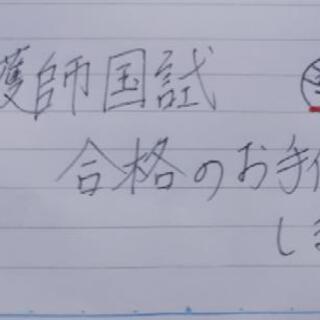 護師国試
合格のお手伝
しま